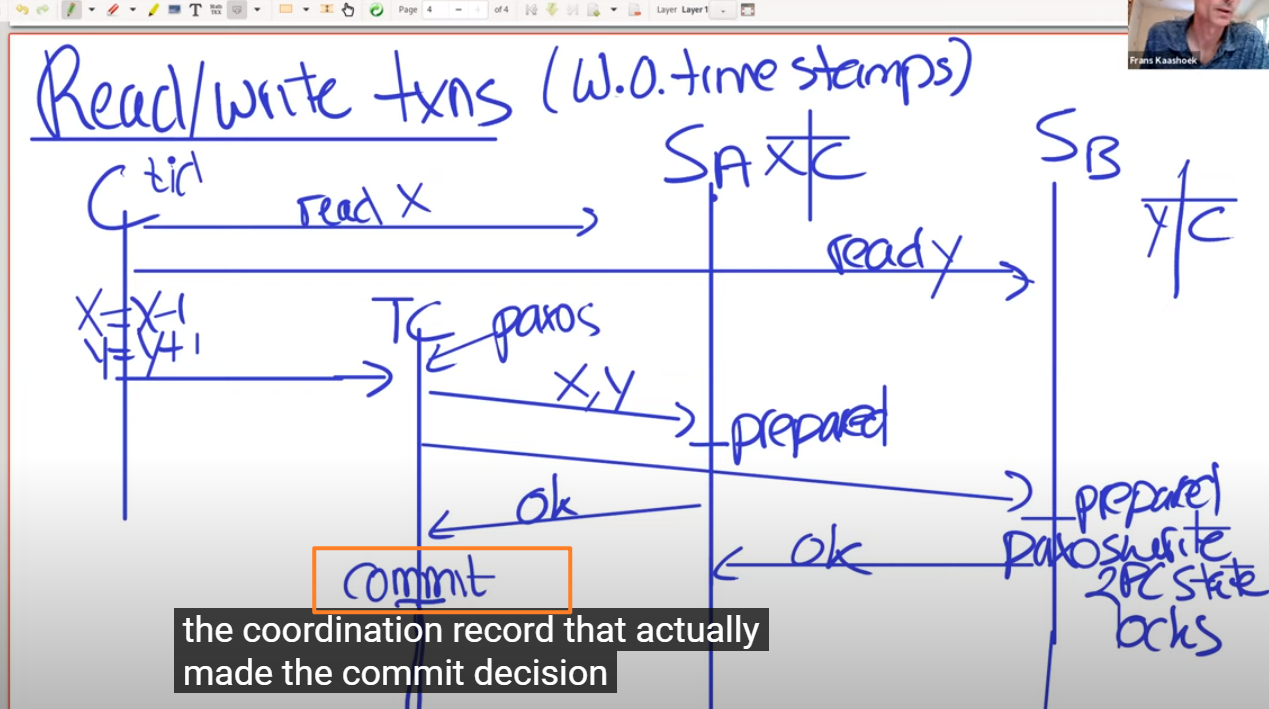 Page 4 of 4 Layer Layer 1
Frans Kaashoek
Read/write txns (W.O. timestamps)
C tid
SA X C
SB
Y C
read X
read y
X=X-1
Y=Y+1
TC
paxos
X,Y
prepared
ok
prepared
ok
paxos write
2PC state
locks
commit
the coordination record that actually
made the commit decision